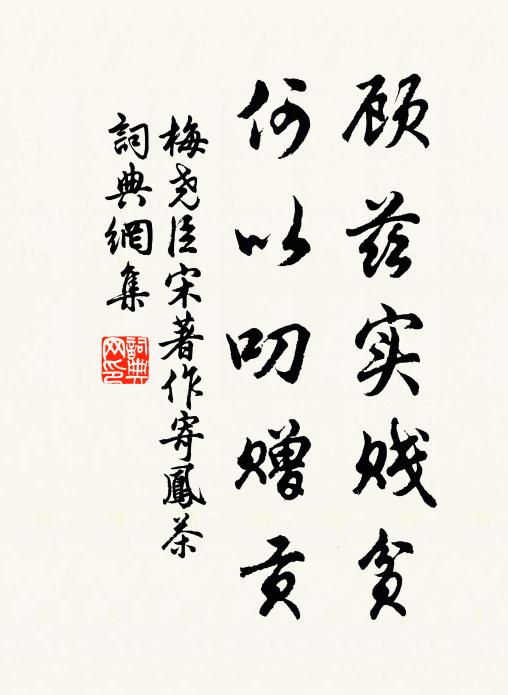 顾兹实贱贫
何以叨赠贡
梅尧臣宋著作寄鳳茶
詞典網集
詞典网印